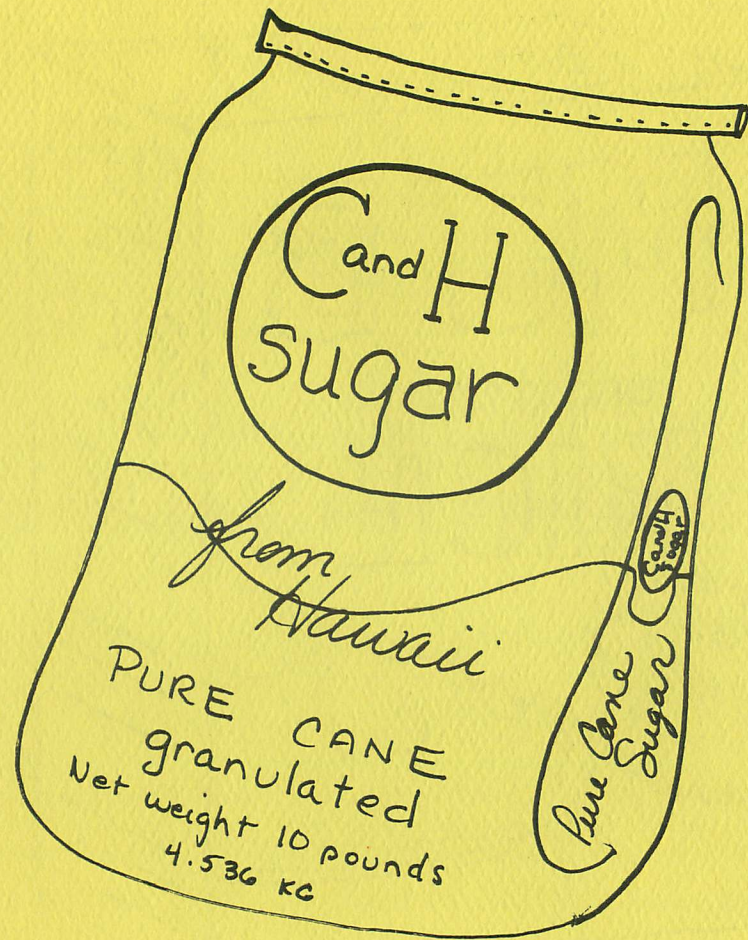 C and H
sugar
from
Hawaii
PURE CANE
granulated
Net weight 10 pounds
4.536 KG
C and H
Sugar
Pure Cane
Sugar